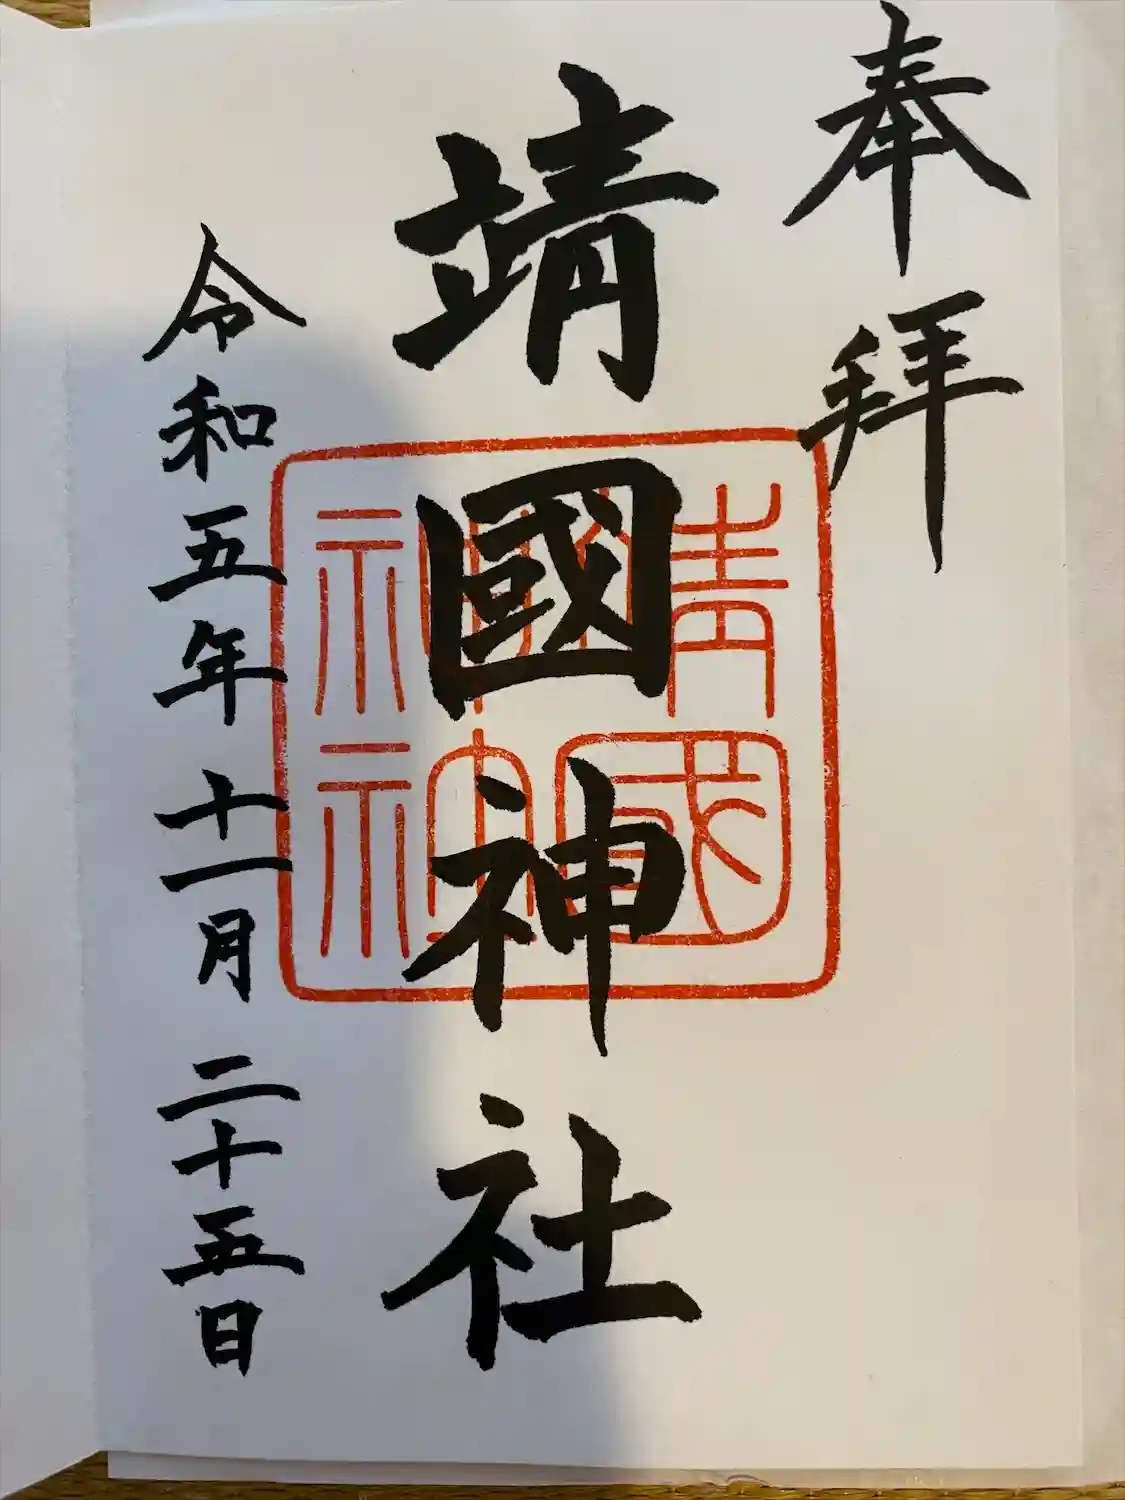 奉拜
靖國神社
令和五年十一月二十五日
靖國
神社